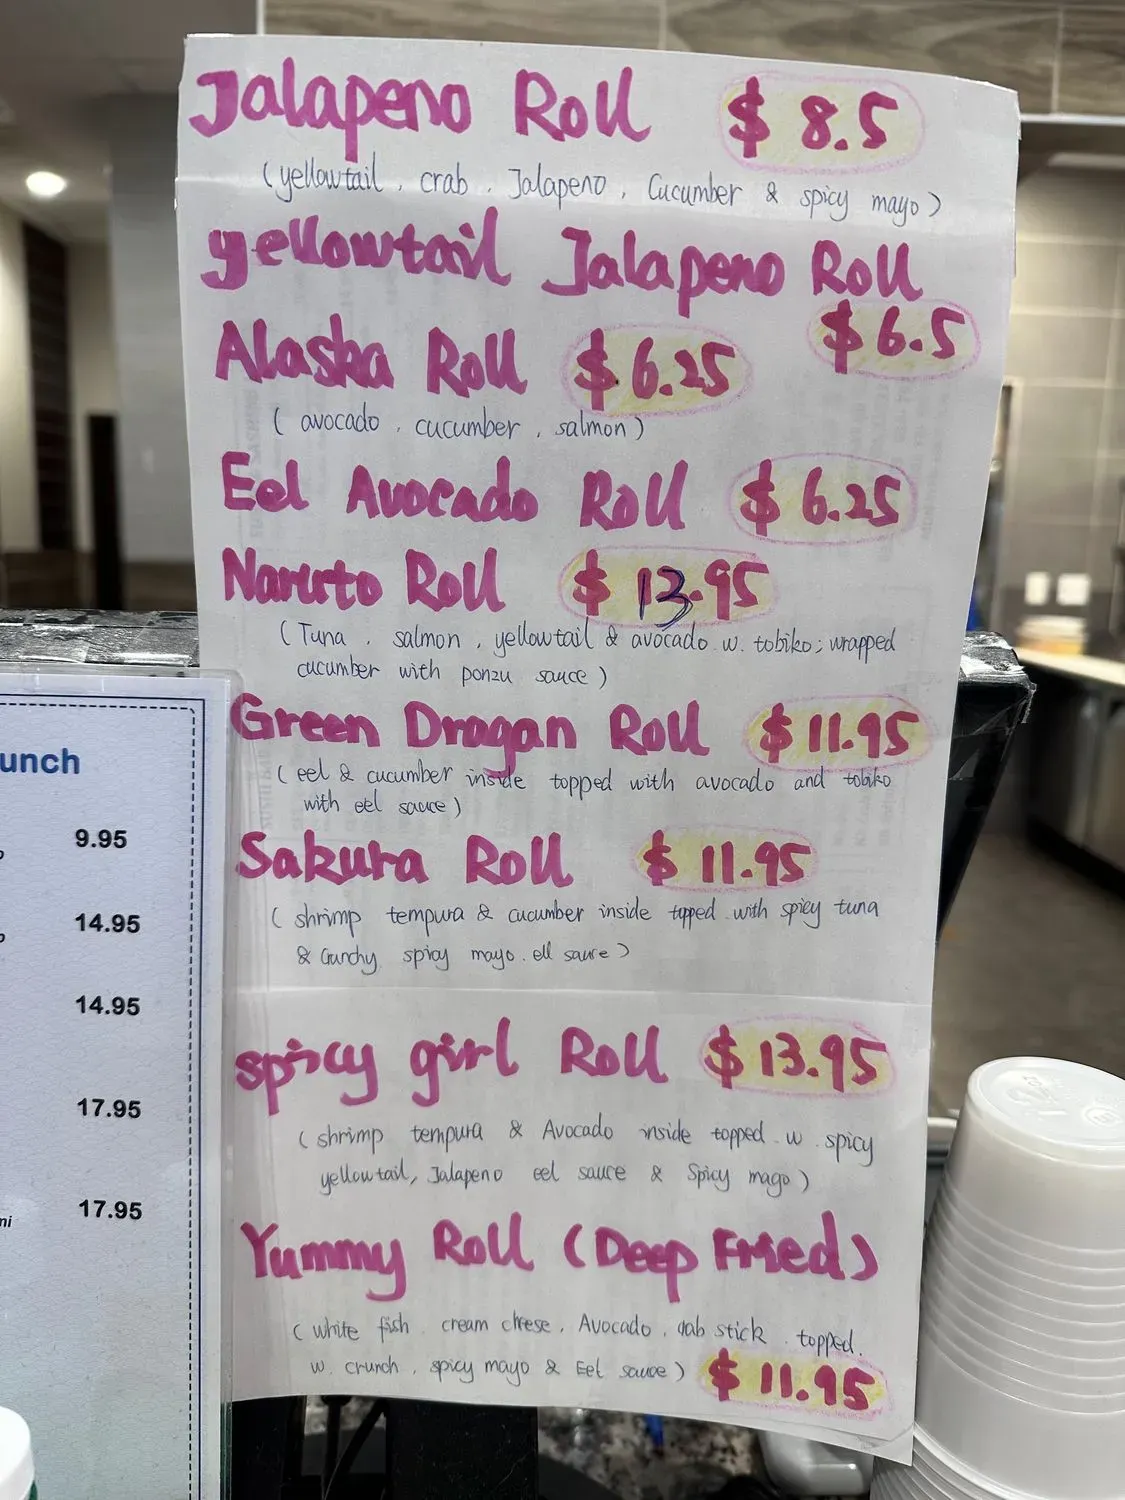 Jalapeno Roll $ 8.5
(yellowtail, crab, Jalapeno, Cucumber & spicy mayo)
yellowtail Jalapeno Roll
$ 6.5
Alaska Roll $ 6.25
(avocado, cucumber, salmon)
Eel Avocado Roll $ 6.25
Naruto Roll $ 13.95
(Tuna, salmon, yellowtail & avocado w. tobiko; wrapped
cucumber with ponzu sauce)
Green Dragan Roll $ 11.95
(eel & cucumber inside topped with avocado and tobiko
with eel sauce)
Sakura Roll $ 11.95
(shrimp tempura & cucumber inside topped with spicy tuna
& Crunchy spicy mayo. ell saure)
spicy girl Roll $ 13.95
(shrimp tempura & Avocado inside topped w. spicy
yellowtail, Jalapeno eel sauce & Spicy mago)
Yummy Roll (Deep Fried)
(white fish. cream cheese, Avocado, crab stick. topped.
w. crunch. spicy mayo & Eel sauce) $ 11.95
unch
9.95
14.95
14.95
17.95
17.95
mi